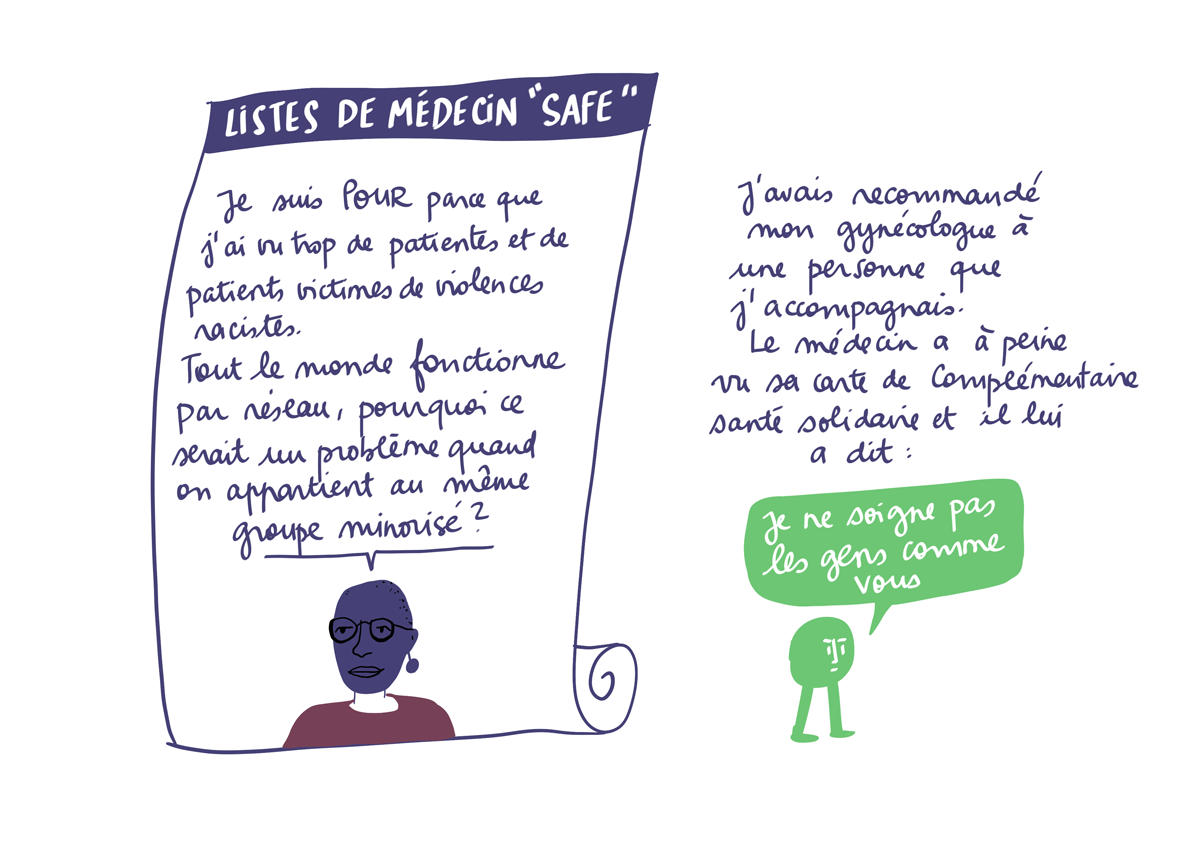 LISTES DE MÉDECIN "SAFE"
Je suis POUR parce que
j'ai vu trop de patientes et de
patients victimes de violences
racistes.
Tout le monde fonctionne
par réseau, pourquoi ce
serait un problème quand
on appartient au même
groupe minorisé ?
J'avais recommandé
mon gynécologue à
une personne que
j'accompagnais.
Le médecin a à peine
vu sa carte de Complémentaire
santé solidaire et il lui
a dit :
Je ne soigne pas
les gens comme
vous